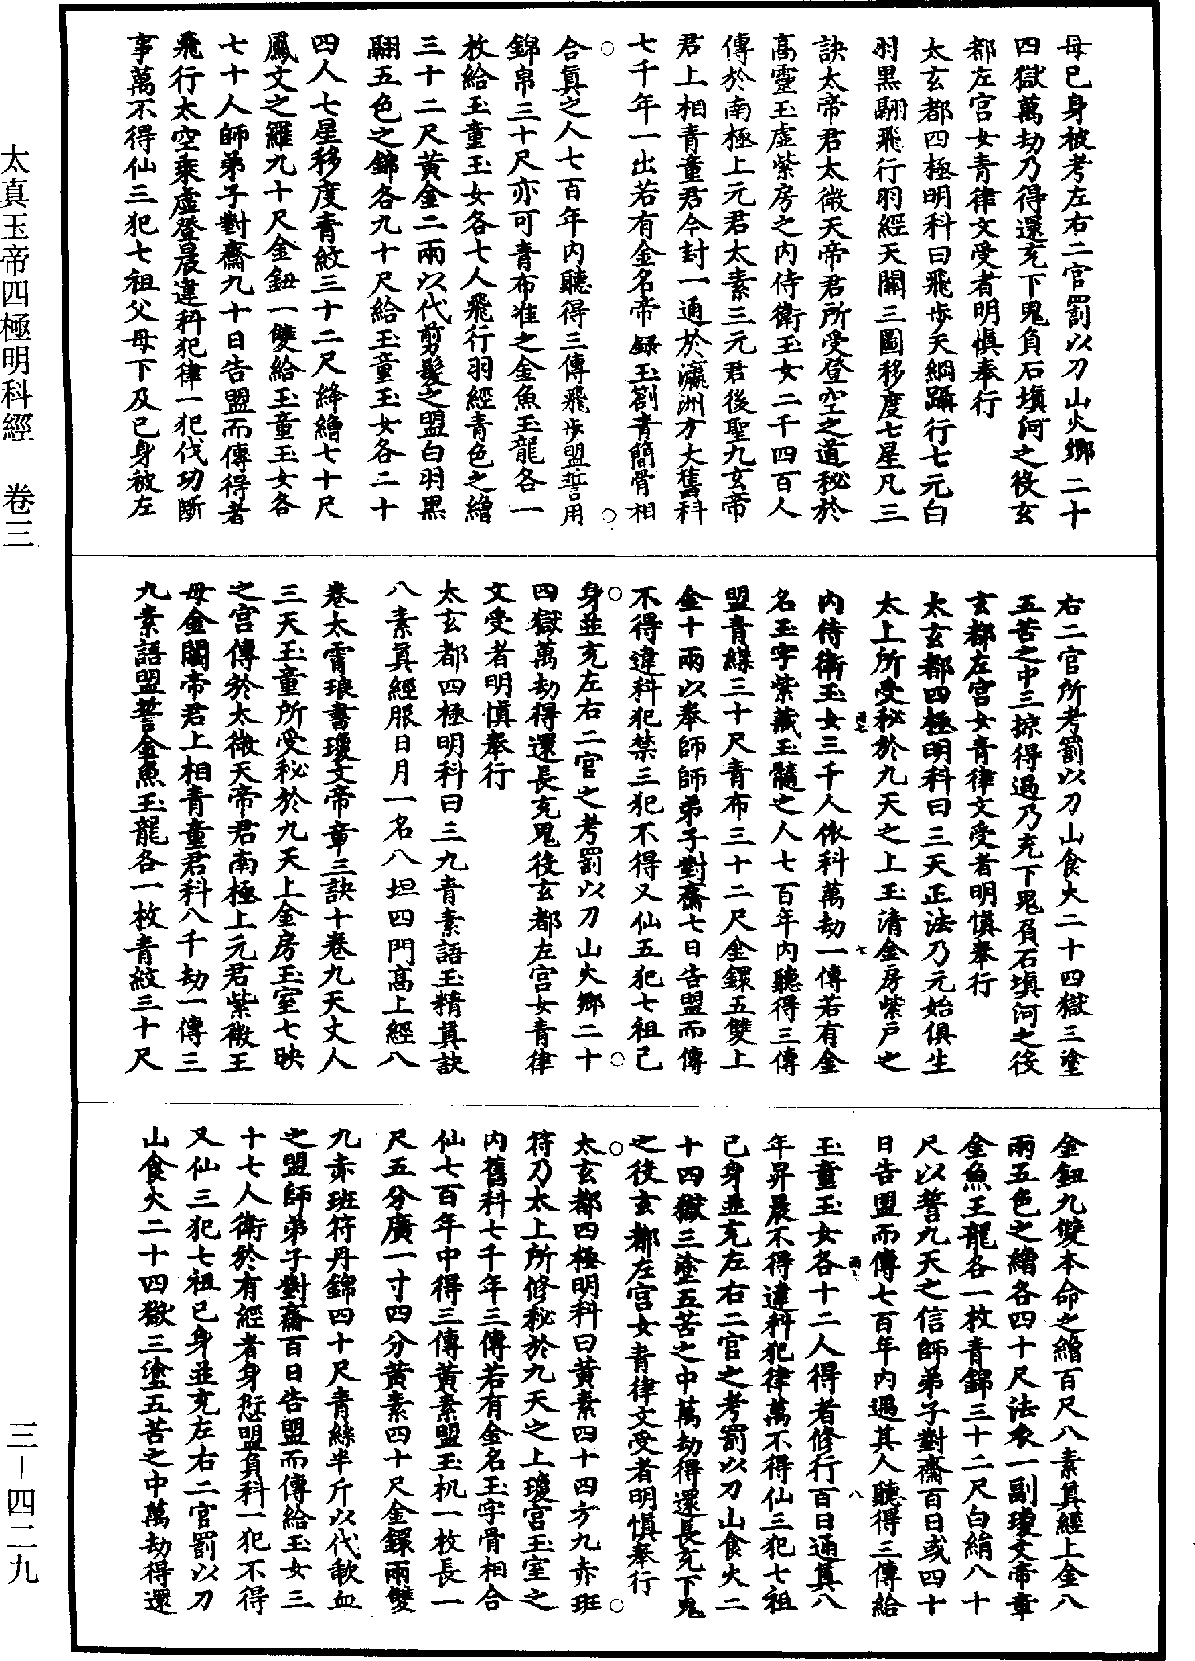 母已身被考左右二官罰以刀山火鄉二十
四獄萬劫乃得還充下鬼負石填河之役玄
都左宮女青律文受者明慎奉行
太玄都四極明科曰飛步天綱躡行七元白
羽黑翮飛行羽經天關三圖移度七星凡三
訣太帝君太微天帝君所受登空之道秘於
高靈玉虛紫房之內侍衛玉女二千四百人
傳於南極上元君太素三元君後聖九玄帝
君上相青童君今封一通於瀛洲方大舊科
七千年一出若有金名帝錄玉劄青簡骨相
合真之人七百年內聽得三傳飛步盟誓用
錦帛三十尺亦可青布准之金魚玉龍各一
枚給玉童玉女各七人飛行羽經青色之繒
三十二尺黃金二兩以代剪髮之盟白羽黑
翮五色之錦各九十尺給玉童玉女各二十
四人七星移度青紋三十二尺絳繒七十尺
鳳文之羅九十尺金鈕一雙給玉童玉女各
七十人師弟子對齋九十日告盟而傳得者
飛行太空乘虛登晨違科犯律一犯伐功斷
事萬不得仙三犯七祖父母下及己身被左
右二官所考罰以刀山食火二十四獄三塗
五苦之中三掠得過乃充下鬼負石填河之役
玄都左宮女青律文受者明慎奉行
太玄都四極明科曰三天正法乃元始俱生
太上所受秘於九天之上玉清金房紫戶之
內侍衛玉女三千人依科萬劫一傳若有金
名玉字紫藏玉髓之人七百年內聽得三傳
盟青緤三十尺青布三十二尺金鐶五雙上
金十兩以奉師師弟子對齋七日告盟而傳
不得違科犯禁三犯不得又仙五犯七祖己
身並充左右二官之考罰以刀山火鄉二十
四獄萬劫得還長充鬼役玄都左宮女青律
文受者明慎奉行
太玄都四極明科曰三九青素語玉精真訣
八素真經服日月一名八坦四門高上經八
卷太霄琅書瓊文帝章三訣十卷九天丈人
三天玉童所受秘於九天上金房玉室七映
之宮傳於太微天帝君南極上元君紫微王
母金闕帝君上相青童君科八千劫一傳三
九素語盟誓金魚玉龍各一枚青紋三十尺
金鈕九雙本命之繒百尺八素真經上金八
兩五色之繒各四十尺法衣一副瓊文帝章
金魚玉龍各一枚青錦三十二尺白絹八十
尺以誓九天之信師弟子對齋百日或四十
日告盟而傳七百年內遇其人聽得三傳給
玉童玉女各十二人得者修行百日通真八
年昇晨不得違科犯律萬不得仙三犯七祖
己身並充左右二官之考罰以刀山食火二
十四獄三塗五苦之中萬劫得還長充下鬼
之役玄都左宮女青律文受者明慎奉行
太玄都四極明科曰黃素四十四方九赤班
符乃太上所修秘於九天之上瓊宮玉室之
內舊科七千年三傳若有金名玉字骨相合
仙七百年中得三傳黃素盟玉札一枚長一
尺五分廣一寸四分黃素四十尺金鐶兩雙
九赤班符丹錦四十尺青絲半斤以代歃血
之盟師弟子對齋百日告盟而傳給玉女三
十七人衛於有經者身愆盟負科一犯不得
又仙三犯七祖己身並充左右二官罰以刀
山食火二十四獄三塗五苦之中萬劫得還
太真玉帝四極明科經 卷三
三－四二九